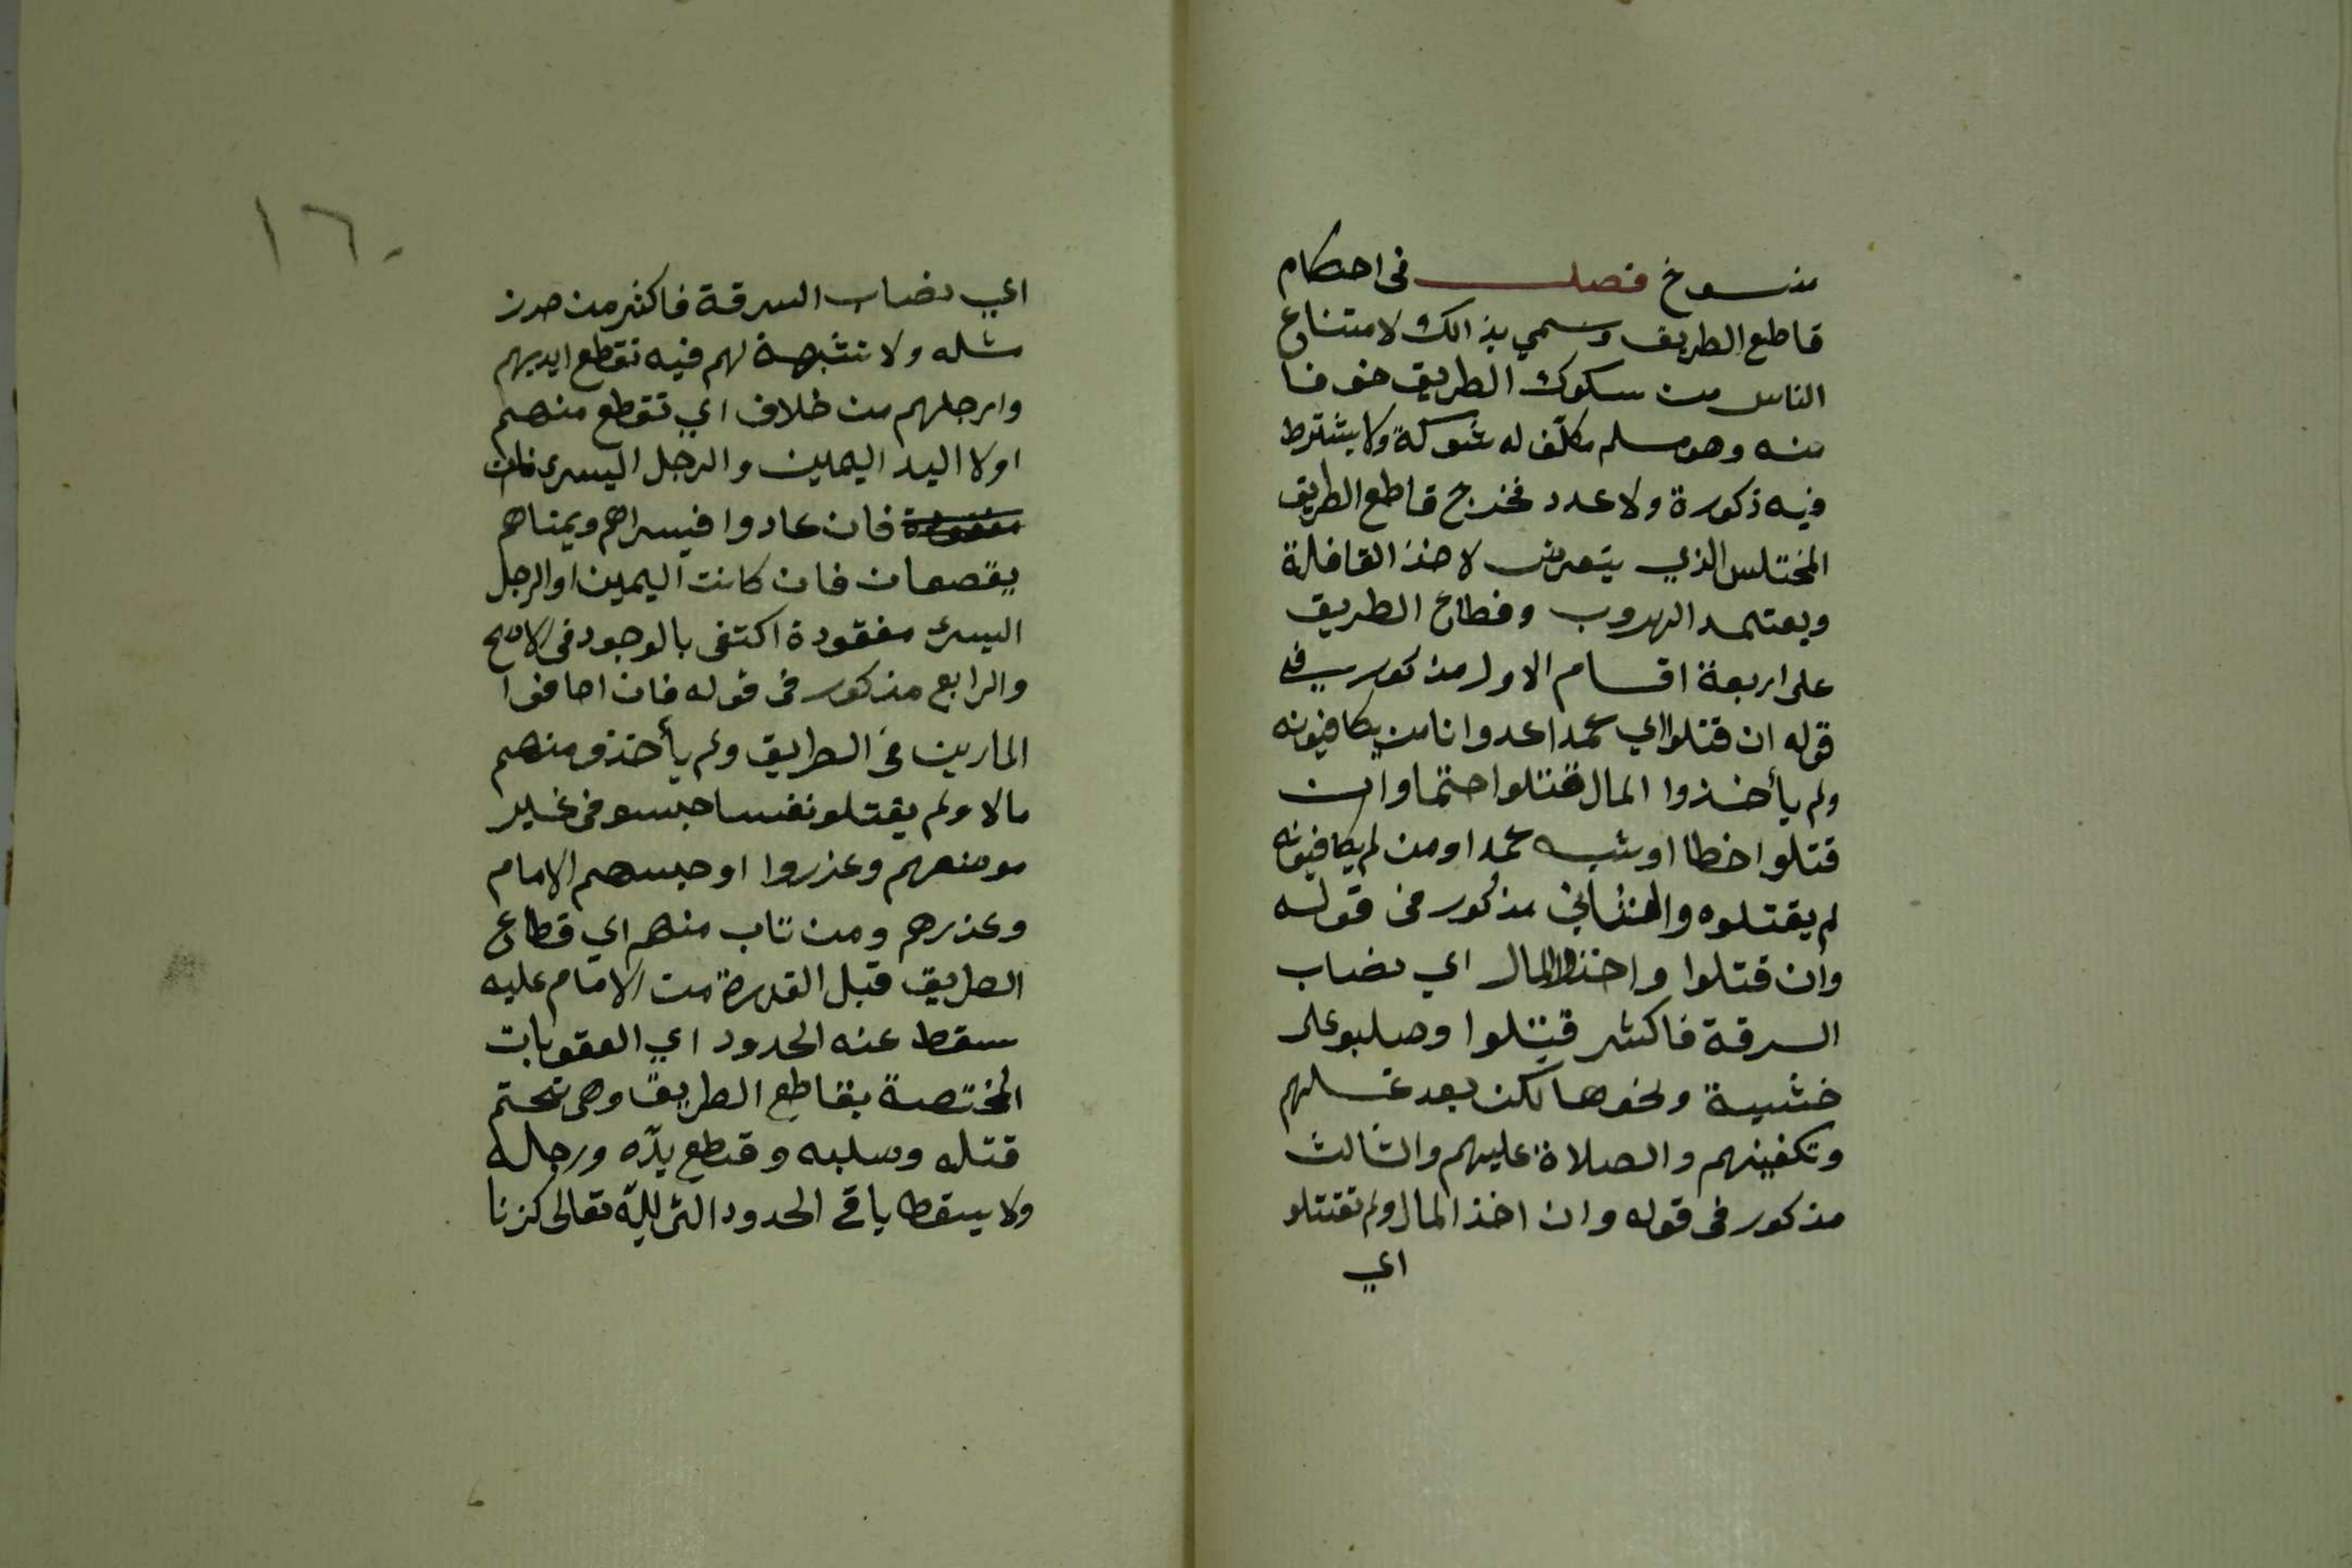 منسوخ فصل فى احكام
قاطع الطريق وسمي بذالك لامتناع
الناس من سكوك الطريق خوفا
منه وهو مسلم مكلف له شوكة ولا يشترط
فيه ذكورة ولا عدد فخرج قاطع الطريق
المختلس الذي يتعرض لاخذ القافلة
ويعتمد الهروب وقطاع الطريق
على اربعة اقسام الاول مذكور في
قوله ان قتلوا اي عمدا عدوانا من يكافيونه
ولم يأخذوا المال قتلوا حتما وان
قتلوا خطا او شبه عمد او من لم يكافيونه
لم يقتلوه والثاني مذكور فى قوله
وان قتلوا واخذوا المال اي نصاب
السرقة فاكثر قتلوا وصلبو على
خشبة ونحوها لكن بعد غسلهم
وتكفينهم والصلاة عليهم والثالث
مذكور فى قوله وان اخذ المال ولم تقتلو
اي
١٦٠
اي نصاب السرقة فاكثر من حرز
مثله ولا شبهة لهم فيه تقطع ايديهم
وارجلهم من خلاف اي تقطع منهم
اولا اليد اليمين والرجل اليسرى
مفقودة فان عادوا فيسراهم ويمناهم
يقصعان فان كانت اليمين او الرجل
اليسرى مفقودة اكتفى بالوجود فى الاصح
والرابع مذكور فى قوله فان اخافوا
المارين فى الطريق ولم يأخذو منهم
مالا ولم يقتلو نفسا حبسو فى غير
موضعهم وعذروا او حبسهم الامام
وعذرهم ومن تاب منهم اي قطاع
الطريق قبل القدرة من الامام عليه
سقط عنه الحدود اي العقوبات
المختصة بقاطع الطريق وهى تحتم
قتله وصلبه وقطع يده ورجله
ولا يسقط باقي الحدود التى لله تعالى كزنا